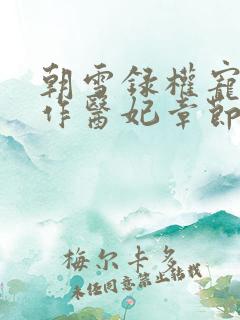 朝雪録權寵
作醫妃章節
梅尔卡多
未经同意禁止转载